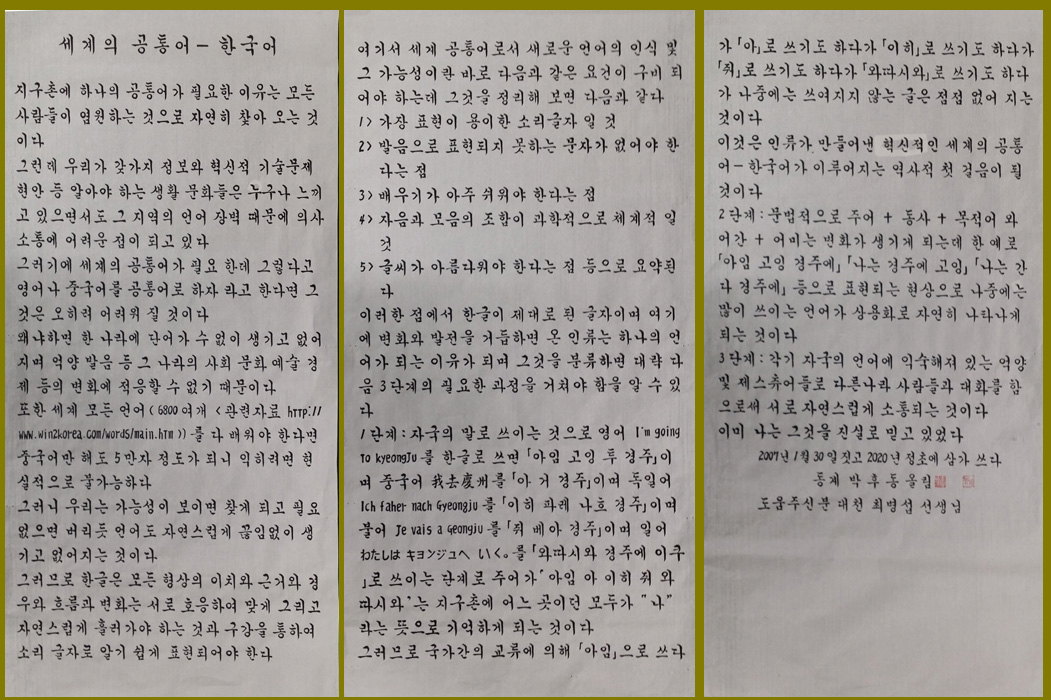 세계의 공통어 - 한국어
지구촌에 하나의 공통어가 필요한 이유는 모든
사람들이 염원하는 것으로 자연히 찾아 오는 것
이다
그런데 우리가 갖가지 정보와 혁신적 기술문제
현안 등 알아야 하는 생활 문화들은 누구나 느끼
고 있으면서도 그 지역의 언어 장벽 때문에 의사
소통에 어려운 점이 되고 있다
그러기에 세계의 공통어가 필요 한데 그렇다고
영어나 중국어를 공통어로 하자 라고 한다면 그
것은 오히려 어려워 질 것이다
왜냐하면 한 나라에 단어가 수 없이 생기고 없어
지며 억양 발음 등 그 나라의 사회 문화 예술 경
제 등의 변화에 적응할 수 없기 때문이다
또한 세계 모든 언어 ( 6800 여개 < 관련자료 http://
www.win2korea.com/words/main.htm >) -를 다 배워야 한다면
중국어만 해도 5만자 정도가 되니 익히려면 현
실적으로 불가능하다
그러니 우리는 가능성이 보이면 찾게 되고 필요
없으면 버리듯 언어도 자연스럽게 끊임없이 생
기고 없어지는 것이다
그러므로 한글은 모든 형상의 이치와 근거와 경
우와 흐름과 변화는 서로 호응하여 맞게 그리고
자연스럽게 흘러가야 하는 것과 구강을 통하여
소리 글자로 알기 쉽게 표현되어야 한다
여기서 세계 공통어로서 새로운 언어의 인식 및
그 가능성이란 바로 다음과 같은 요건이 구비 되
어야 하는데 그것을 정리해 보면 다음과 같다
1) 가장 표현이 용이한 소리글자 일 것
2) 발음으로 표현되지 못하는 문자가 없어야 한
다는 점
3) 배우기가 아주 쉬워야 한다는 점
4) 자음과 모음의 조합이 과학적으로 체계적 일
것
5) 글씨가 아름다워야 한다는 점 등으로 요약된
다
이러한 점에서 한글이 제대로 된 글자이며 여기
에 변화와 발전을 거듭하면 온 인류는 하나의 언
어가 되는 이유가 되며 그것을 분류하면 대략 다
음 3단계의 필요한 과정을 거쳐야 함을 알 수 있
다
1단계 : 자국의 말로 쓰이는 것으로 영어 I'm going
to kyeongju 를 한글로 쓰면 「아임 고잉 투 경주」이
며 중국어 我去慶州를 「아 거 경주」이며 독일어
Ich faher nach Gyeongju 를 「이히 파레 나흐 경주」이며
불어 Je vais a Geongju 를 「줘 베아 경주」이며 일어
わたしは キョンジュへ いく。를 「와따시와 경주에 이구
」로 쓰이는 단계로 주어가 "아임 아 이히 줘 와
따시와"는 지구촌에 어느 곳이던 모두가 "나"
라는 뜻으로 기억하게 되는 것이다
그러므로 국가간의 교류에 의해 「아임」으로 쓰다
가 「아」로 쓰기도 하다가 「이히」로 쓰기도 하다가
「줘」로 쓰기도 하다가 「와따시와」로 쓰기도 하다
가 나중에는 쓰여지지 않는 글은 점점 없어 지는
것이다
이것은 인류가 만들어낸 혁신적인 세계의 공통
어 - 한국어가 이루어지는 역사적 첫 걸음이 될
것이다
2단계 : 문법적으로 주어 + 동사 + 목적어 와
어간 + 어미는 변화가 생기게 되는데 한 예로
「아임 고잉 경주에」「나는 경주에 고잉」「나는 간
다 경주에」 등으로 표현되는 현상으로 나중에는
많이 쓰이는 언어가 상용화로 자연히 나타나게
되는 것이다
3단계 : 각기 자국의 언어에 익숙해져 있는 억양
및 제스츄어들로 다른나라 사람들과 대화를 함
으로써 서로 자연스럽게 소통되는 것이다
이미 나는 그것을 진실로 믿고 있었다
2007년 1월 30일 짓고 2020년 정초에 삼가 쓰다
동계 박 후 동 올림
도움주신분 대천 최명섭 선생님